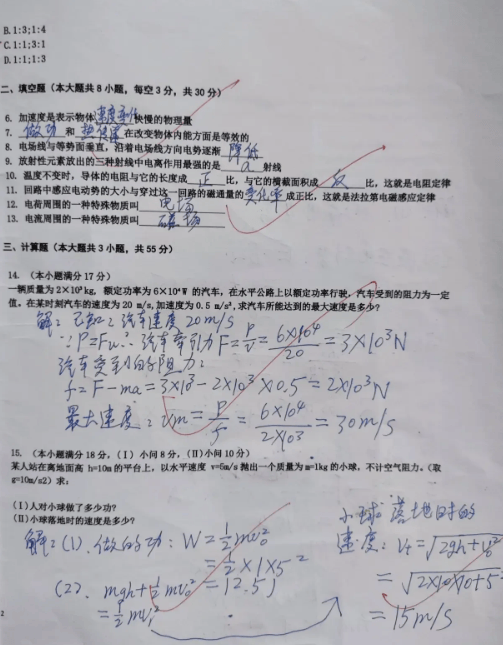 B.1:3;1:4
C.1:1;3:1
D.1:1;1:3
二、填空题（本大题共8小题，每空3分，共30分）
6. 加速度是表示物体速度变化快慢的物理量
7. 做功 和 热传递 在改变物体内能方面是等效的
8. 电场线与等势面垂直，沿着电场线方向电势逐渐 降低
9. 放射性元素放出的三种射线中电离作用最强的是 α 射线
10. 温度不变时，导体的电阻与它的长度成 正 比，与它的横截面积成 反 比，这就是电阻定律
11. 回路中感应电动势的大小与穿过这一回路的磁通量的 变化率 成正比，这就是法拉第电磁感应定律
12. 电荷周围的一种特殊物质叫 电场
13. 电流周围的一种特殊物质叫 磁场
三、计算题（本大题共3小题，共55分）
14. （本小题满分17分）
一辆质量为2×10³kg，额定功率为6×10⁴W 的汽车，在水平公路上以额定功率行驶，汽车受到的阻力为一定
值。在某时刻汽车的速度为20 m/s,加速度为0.5 m/s²,求汽车所能达到的最大速度是多少？
解：已知：汽车速度20m/s
∵P=Fv∴汽车牵引力F=P/v=6×10⁴/20=3×10³N
汽车受到的阻力：
f=F-ma=3×10³-2×10³×0.5=2×10³N
最大速度：vm=P/f=6×10⁴/2×10³=30m/s
15. （本小题满分18分，（I）小问8分，（II）小问10分）
某人站在离地面高 h=10m 的平台上，以水平速度 v=5m/s 抛出一个质量为m=1kg的小球，不计空气阻力。（取
g=10m/s2）求：
（I）人对小球做了多少功？
（II）小球落地时的速度是多少？
解：(1).做的功：W=½mv₀²
=½×1×5²
=12.5J
(2). mgh+½mv₀²
=½mv₁²
小球落地时的
速度：vt=√2gh+v₀²
=√2×10×10+5²
=15m/s
2